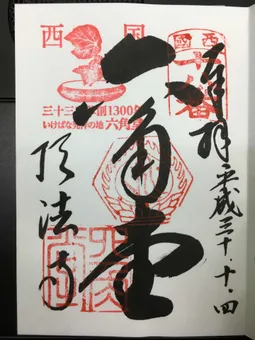 奉拝 平成三十.十.四
國西
十八番
六角堂
西国
三十三所草創1300年
いけばな発祥の地 六角堂
頂法寺